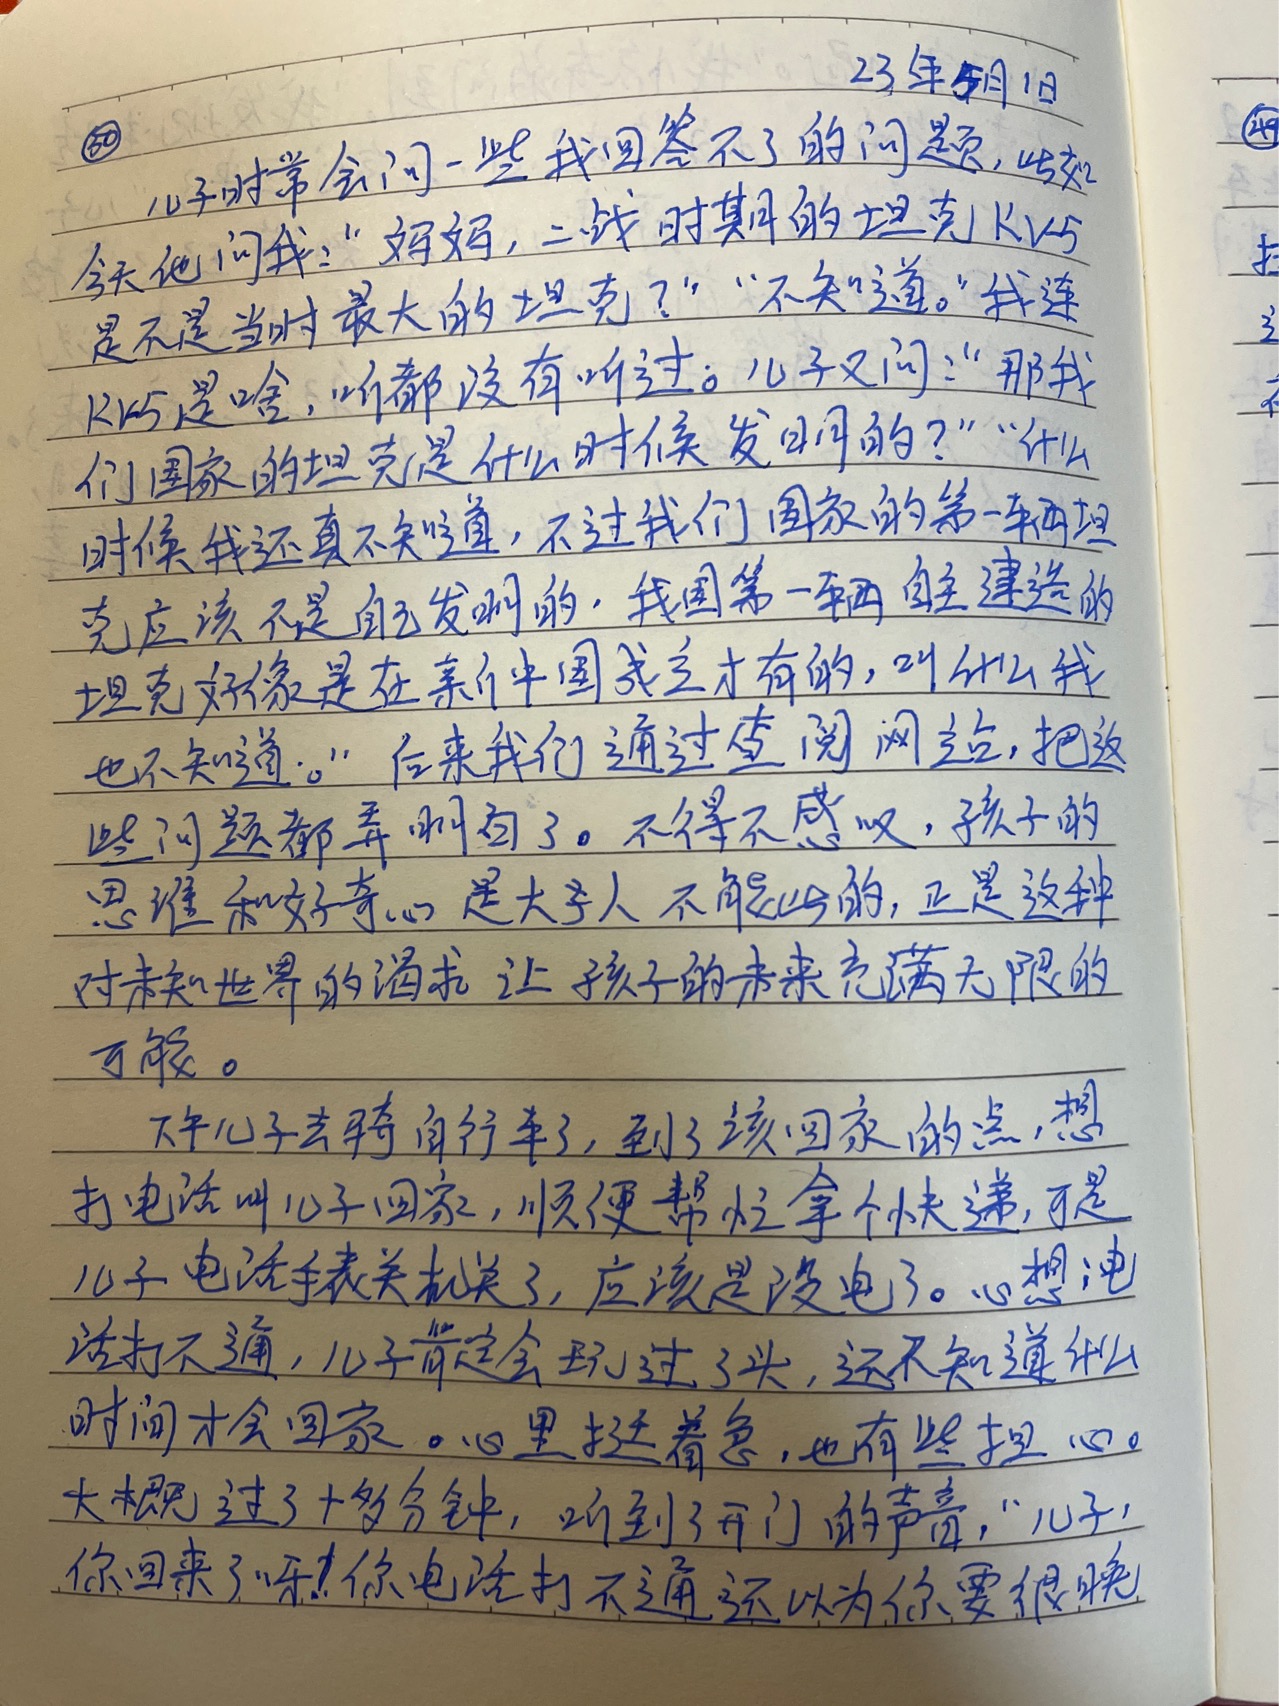 23年5月1日
50
儿子时常会问一些我回答不了的问题，比如
今天他问我：“妈妈，二战时期的坦克KV5
是不是当时最大的坦克？”“不知道。”我连
KV5是啥，听都没有听过。儿子又问：“那我
们国家的坦克是什么时候发明的？”“什么
时候我还真不知道，不过我们国家的第一辆坦
克应该不是自己发明的，我国第一辆自主建造的
坦克好像是在新中国成立才有的，叫什么我
也不知道。”后来我们通过查阅网站，把这
些问题都弄明白了。不得不感叹，孩子的
思维和好奇心是大多人不能比的，正是这种
对未知世界的渴求让孩子的未来充满无限的
可能。
下午儿子去骑自行车了，到了该回家的点，想
打电话叫儿子回家，顺便帮忙拿个快递，可是
儿子电话手表关机关了，应该是没电了。心想：电
话打不通，儿子肯定会玩过了头，还不知道什么
时间才会回家。心里挺着急，也有些担心。
大概过了十多分钟，听到了开门的声音，“儿子，
你回来了呀！你电话打不通还以为你要很晚